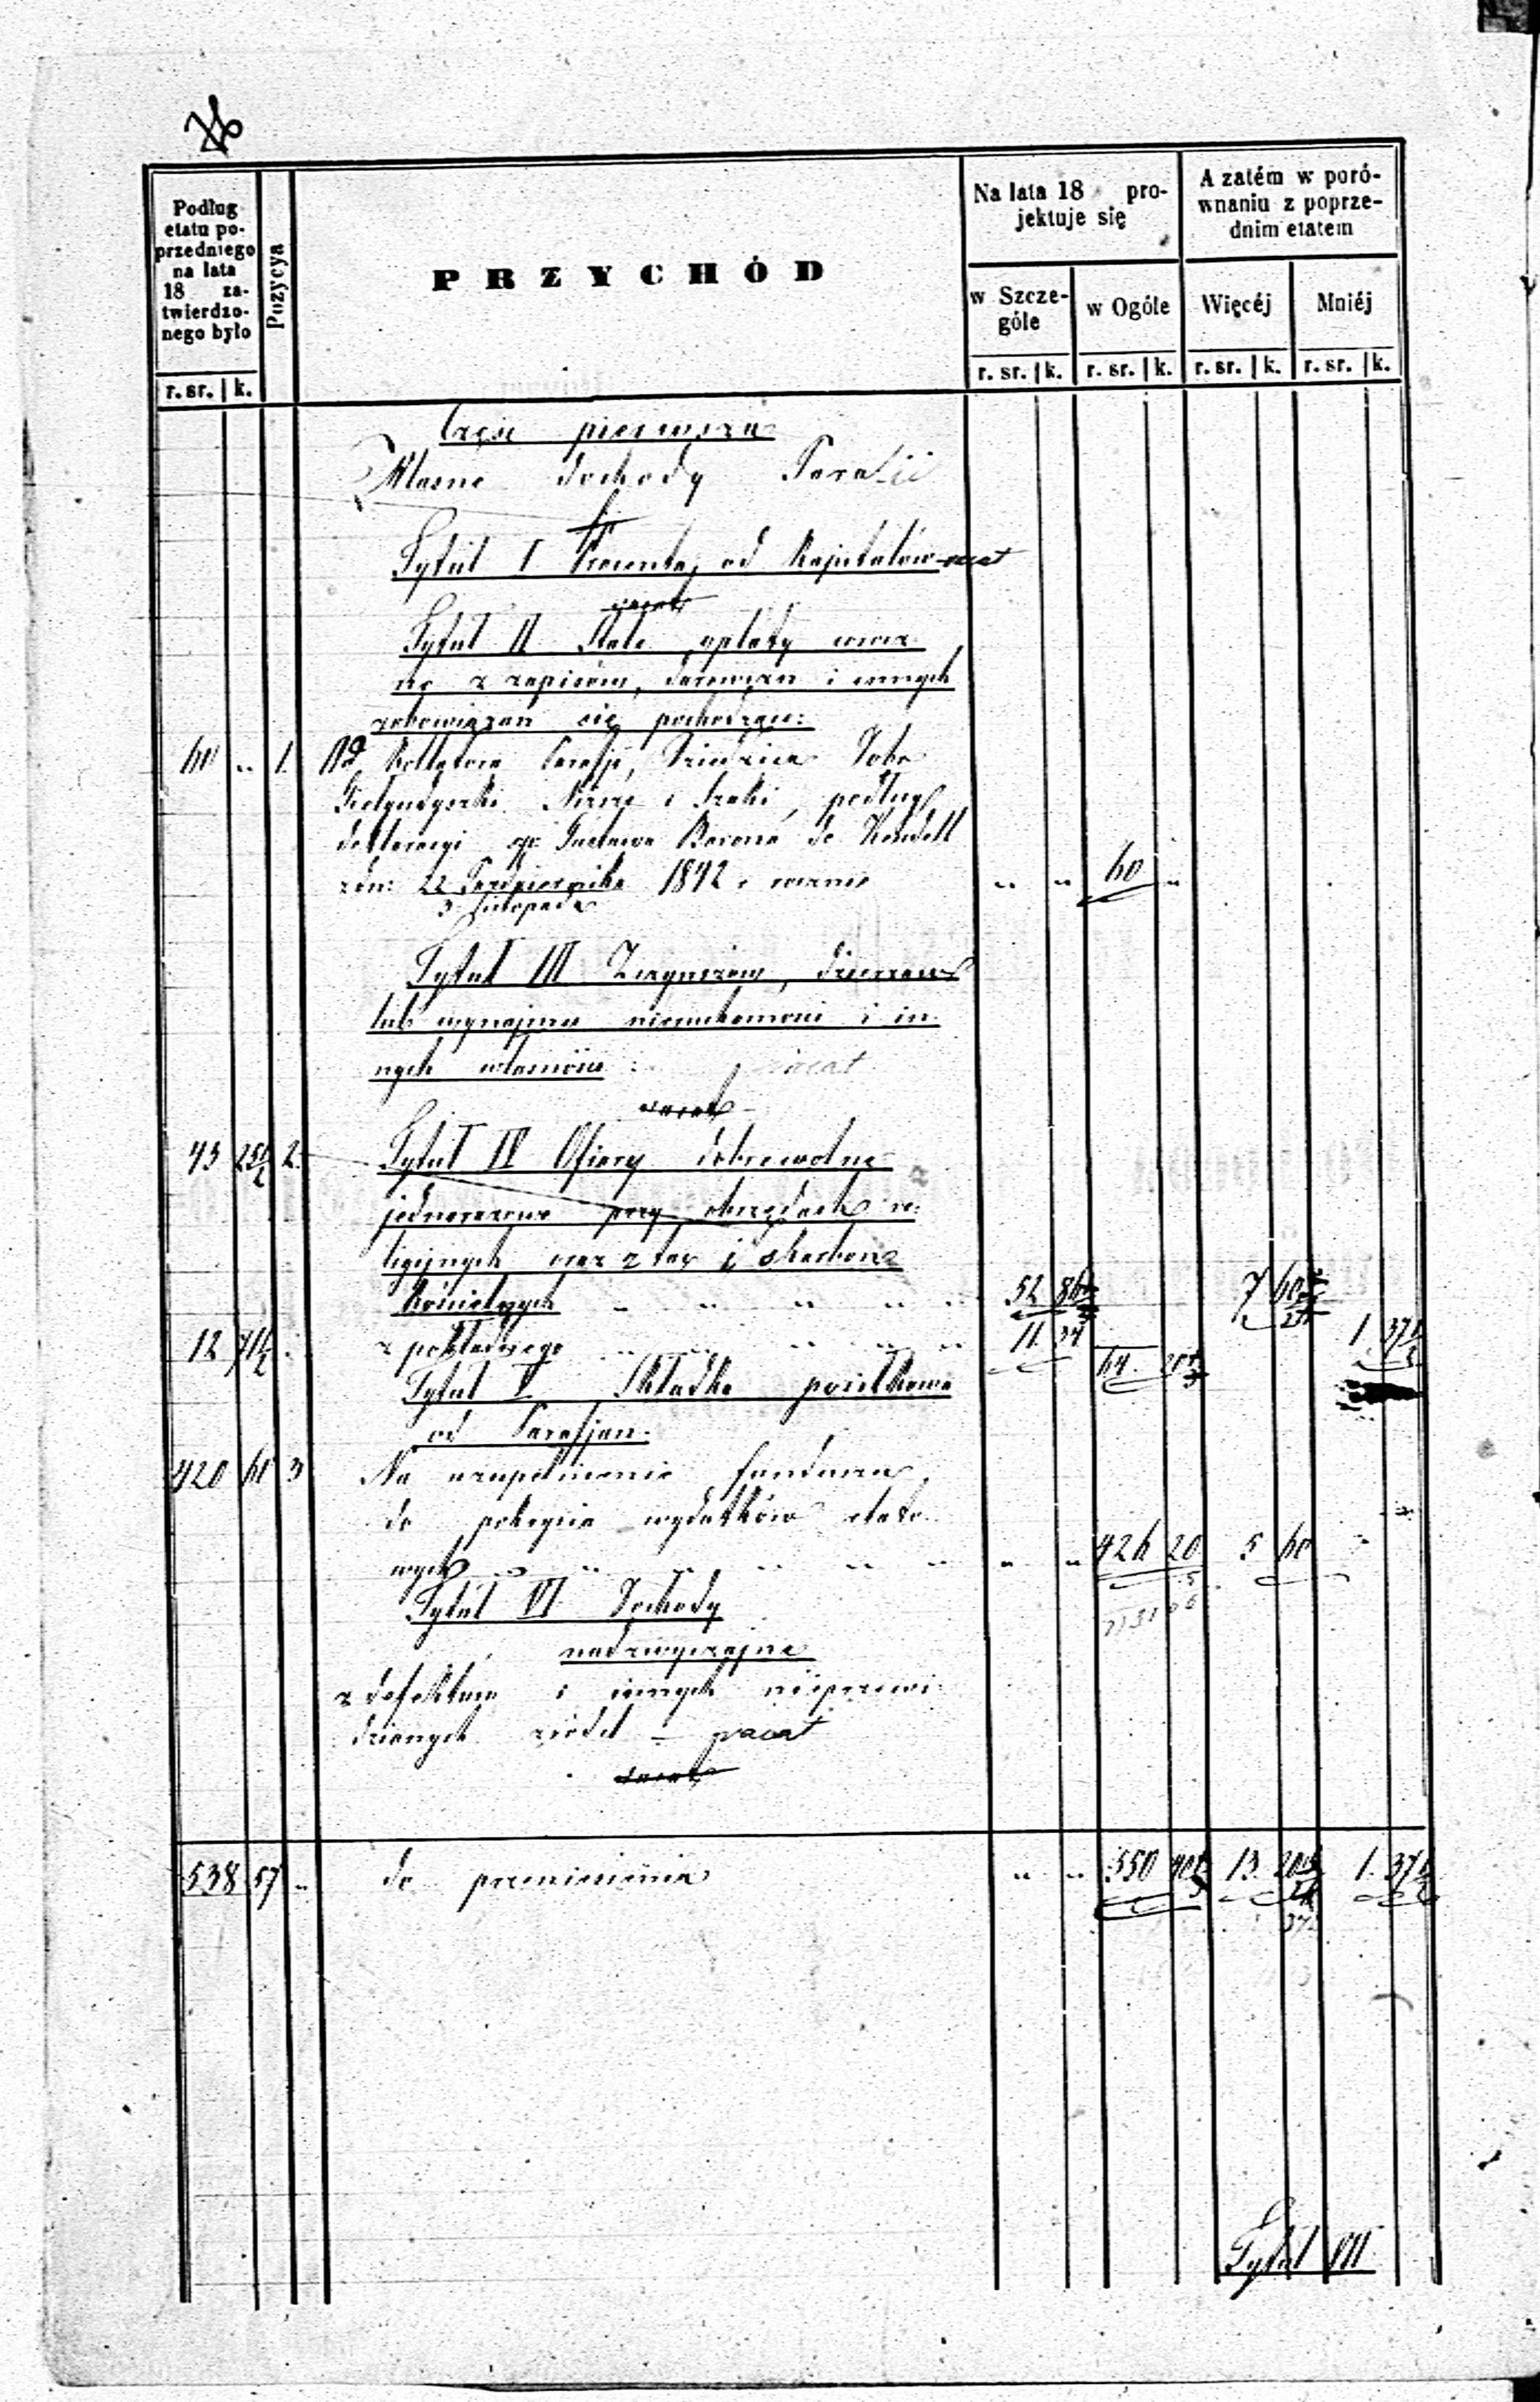 Podług
etatu po-
przedniego
na lata
18 za-
twierdzo-
nego było
r. sr. | k.
Pozycya
PRZYCHÓD
Na lata 18 pro-
jektuje się
w Szcze-
góle
r. sr. | k.
w Ogóle
r. sr. | k.
A zatém w poró-
wnaniu z poprze-
dnim etatem
Więcéj
r. sr. | k.
Mniéj
r. sr. | k.
Część pierwsza
Własne dochody Parafii
Tytuł I Procenta od Kapitałów vacat
vacat
Tytuł II Stałe opłaty wiecz
ne z zapisów, darowizn i innych
zobowiązań się pochodzące:
60 „ 1. Od Kollatora Parafji, Dziedzica Dobr
i podług
deklaracyi Gustawa Barona de
zdn: 22 Października 1842 r. rocznie „ „ 60 „
3 Listopada
Tytuł III Z czynszów, dzierzaw
lub wynajmu nieruchomości i in-
nych własności: vacat
vacat
2. Tytuł IV Ofiary dobrowolne
jednorazowe przy obrzędach re-
ligijnych oraz z tac i skarbon
Kościelnych 52
z pokładnego 11 34
Tytuł V Składka posiłkowa
od Parafjan.
420 60 3 Na uzupełnienie funduszu,
do pokrycia wydatków etato
wych „ „ 426 20 5 60
Tytuł VI Dochody
nadzwyczajne
z defektów i innych nieprzewi
dzianych źródeł – vacat
vacat
538 57 „ do przeniesienia „ „ 550 13
Tytuł VII